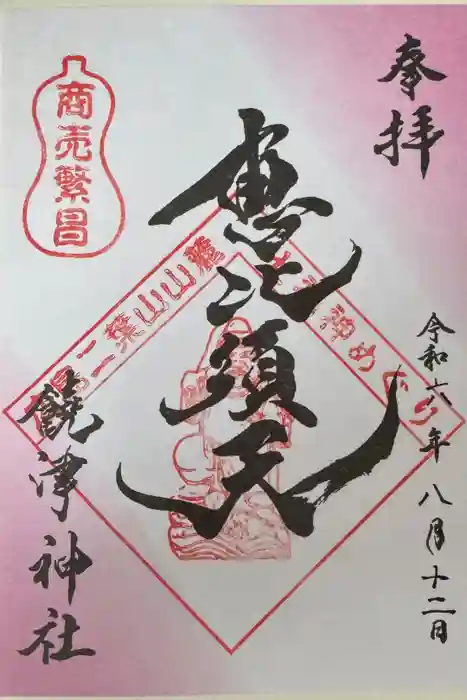 奉拝
令和六年八月十二日
恵比須天
商売繁昌
二葉山山麓
神めぐり
饒津神社